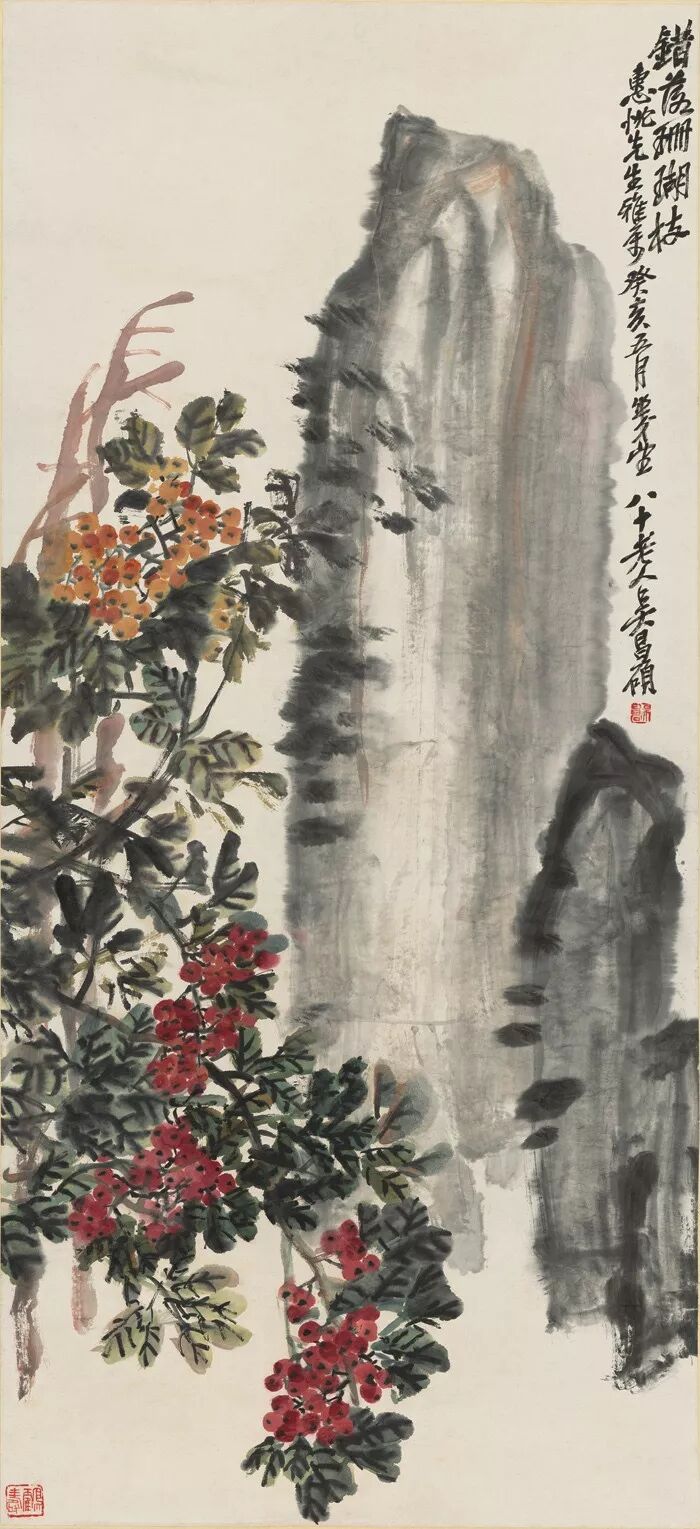 錯落珊瑚枝
惠忱先生雅屬 癸亥五月 夢坐 八十老人吳昌碩